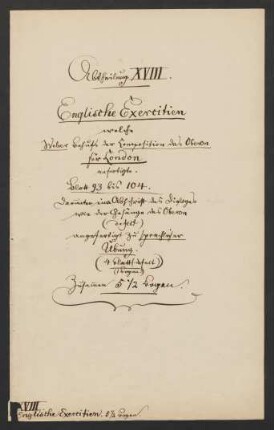 Abtheilung XVIII.
Englische Exercitien
welche
Weber behufs der Composition des Oberon
für London
anfertigte.
Blatt 93 bis 104.
Darunter eine Abschrift des Dialoges
wie der Gesänge des Oberon
angefertigt zu sprachlicher
Übung.
Zusamen 5 1/2 Bogen.
XVIII
Englische Exercitien. 5 1/2 Bogen